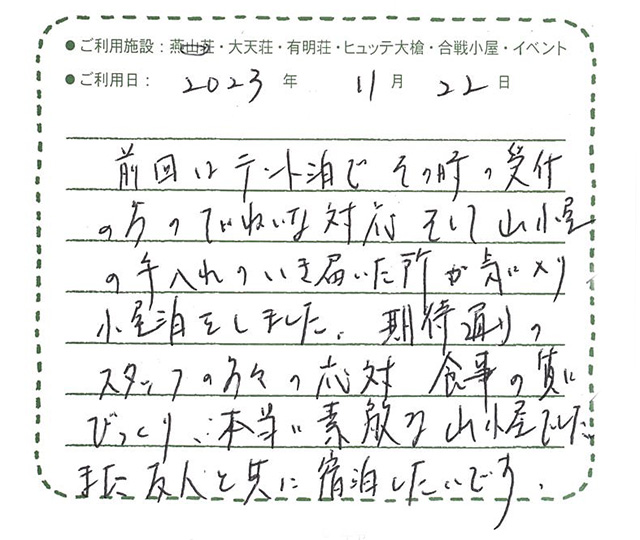 ●ご利用施設：燕山荘・大天荘・有明荘・ヒュッテ大槍・合戦小屋・イベント
●ご利用日： 2023 年 11 月 22 日
前回はテント泊で その時の受付
の方のていねいな対応 そして山小屋
の手入れのいき届いた所が気に入り
小屋泊をしました。期待通りの
スタッフの方々の応対 食事の質に
びっくり、本当に素敵な山小屋でした
また友人と共に宿泊したいです。